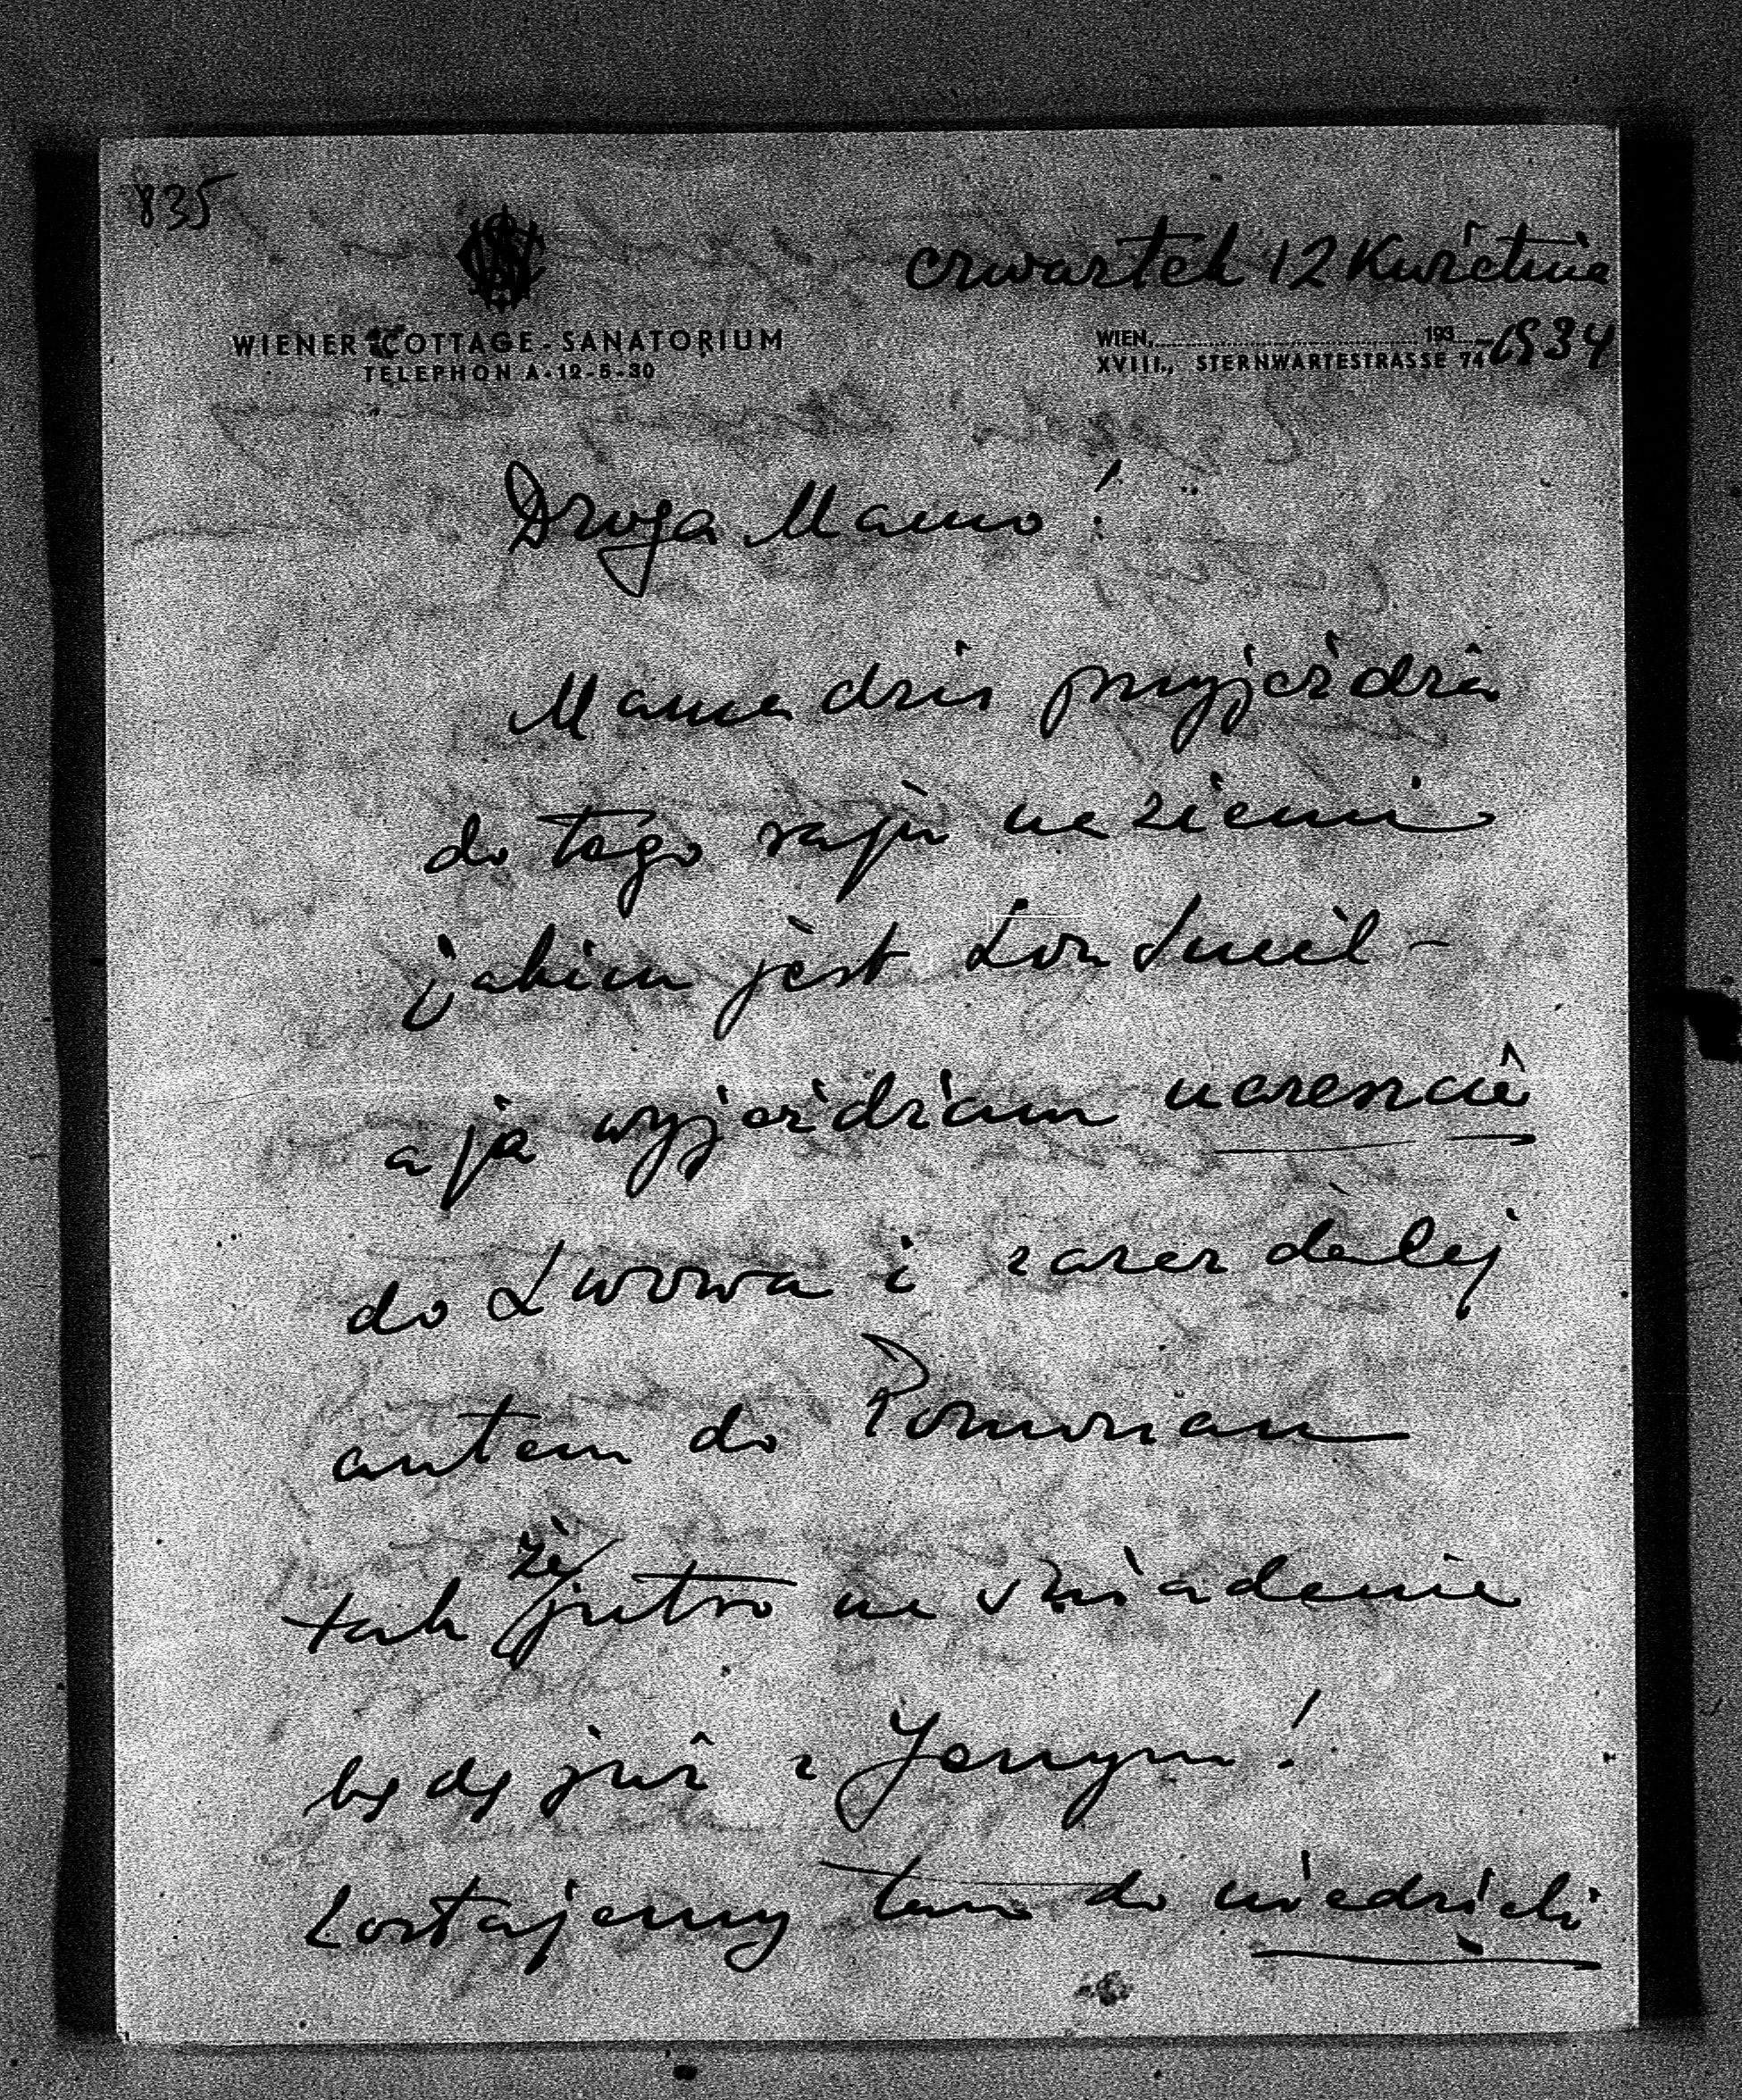 835
czwartek 12 Kwietnia
WIENER COTTAGE-SANATORIUM
TELEPHON A-12-5-30
WIEN, 193 1934
XVIII., STERNWARTESTRASSE 74
Droga Mamo!
Mama dziś przyjeżdża
do tego raju na ziemi
jakim jest –
a ja wyjeżdżam nareszcie
do Lwowa i zaraz dalej
autem do Pomorzan
tak że jutro na śniadanie
będę już z Jerzym!
Zostajemy tam do niedzieli